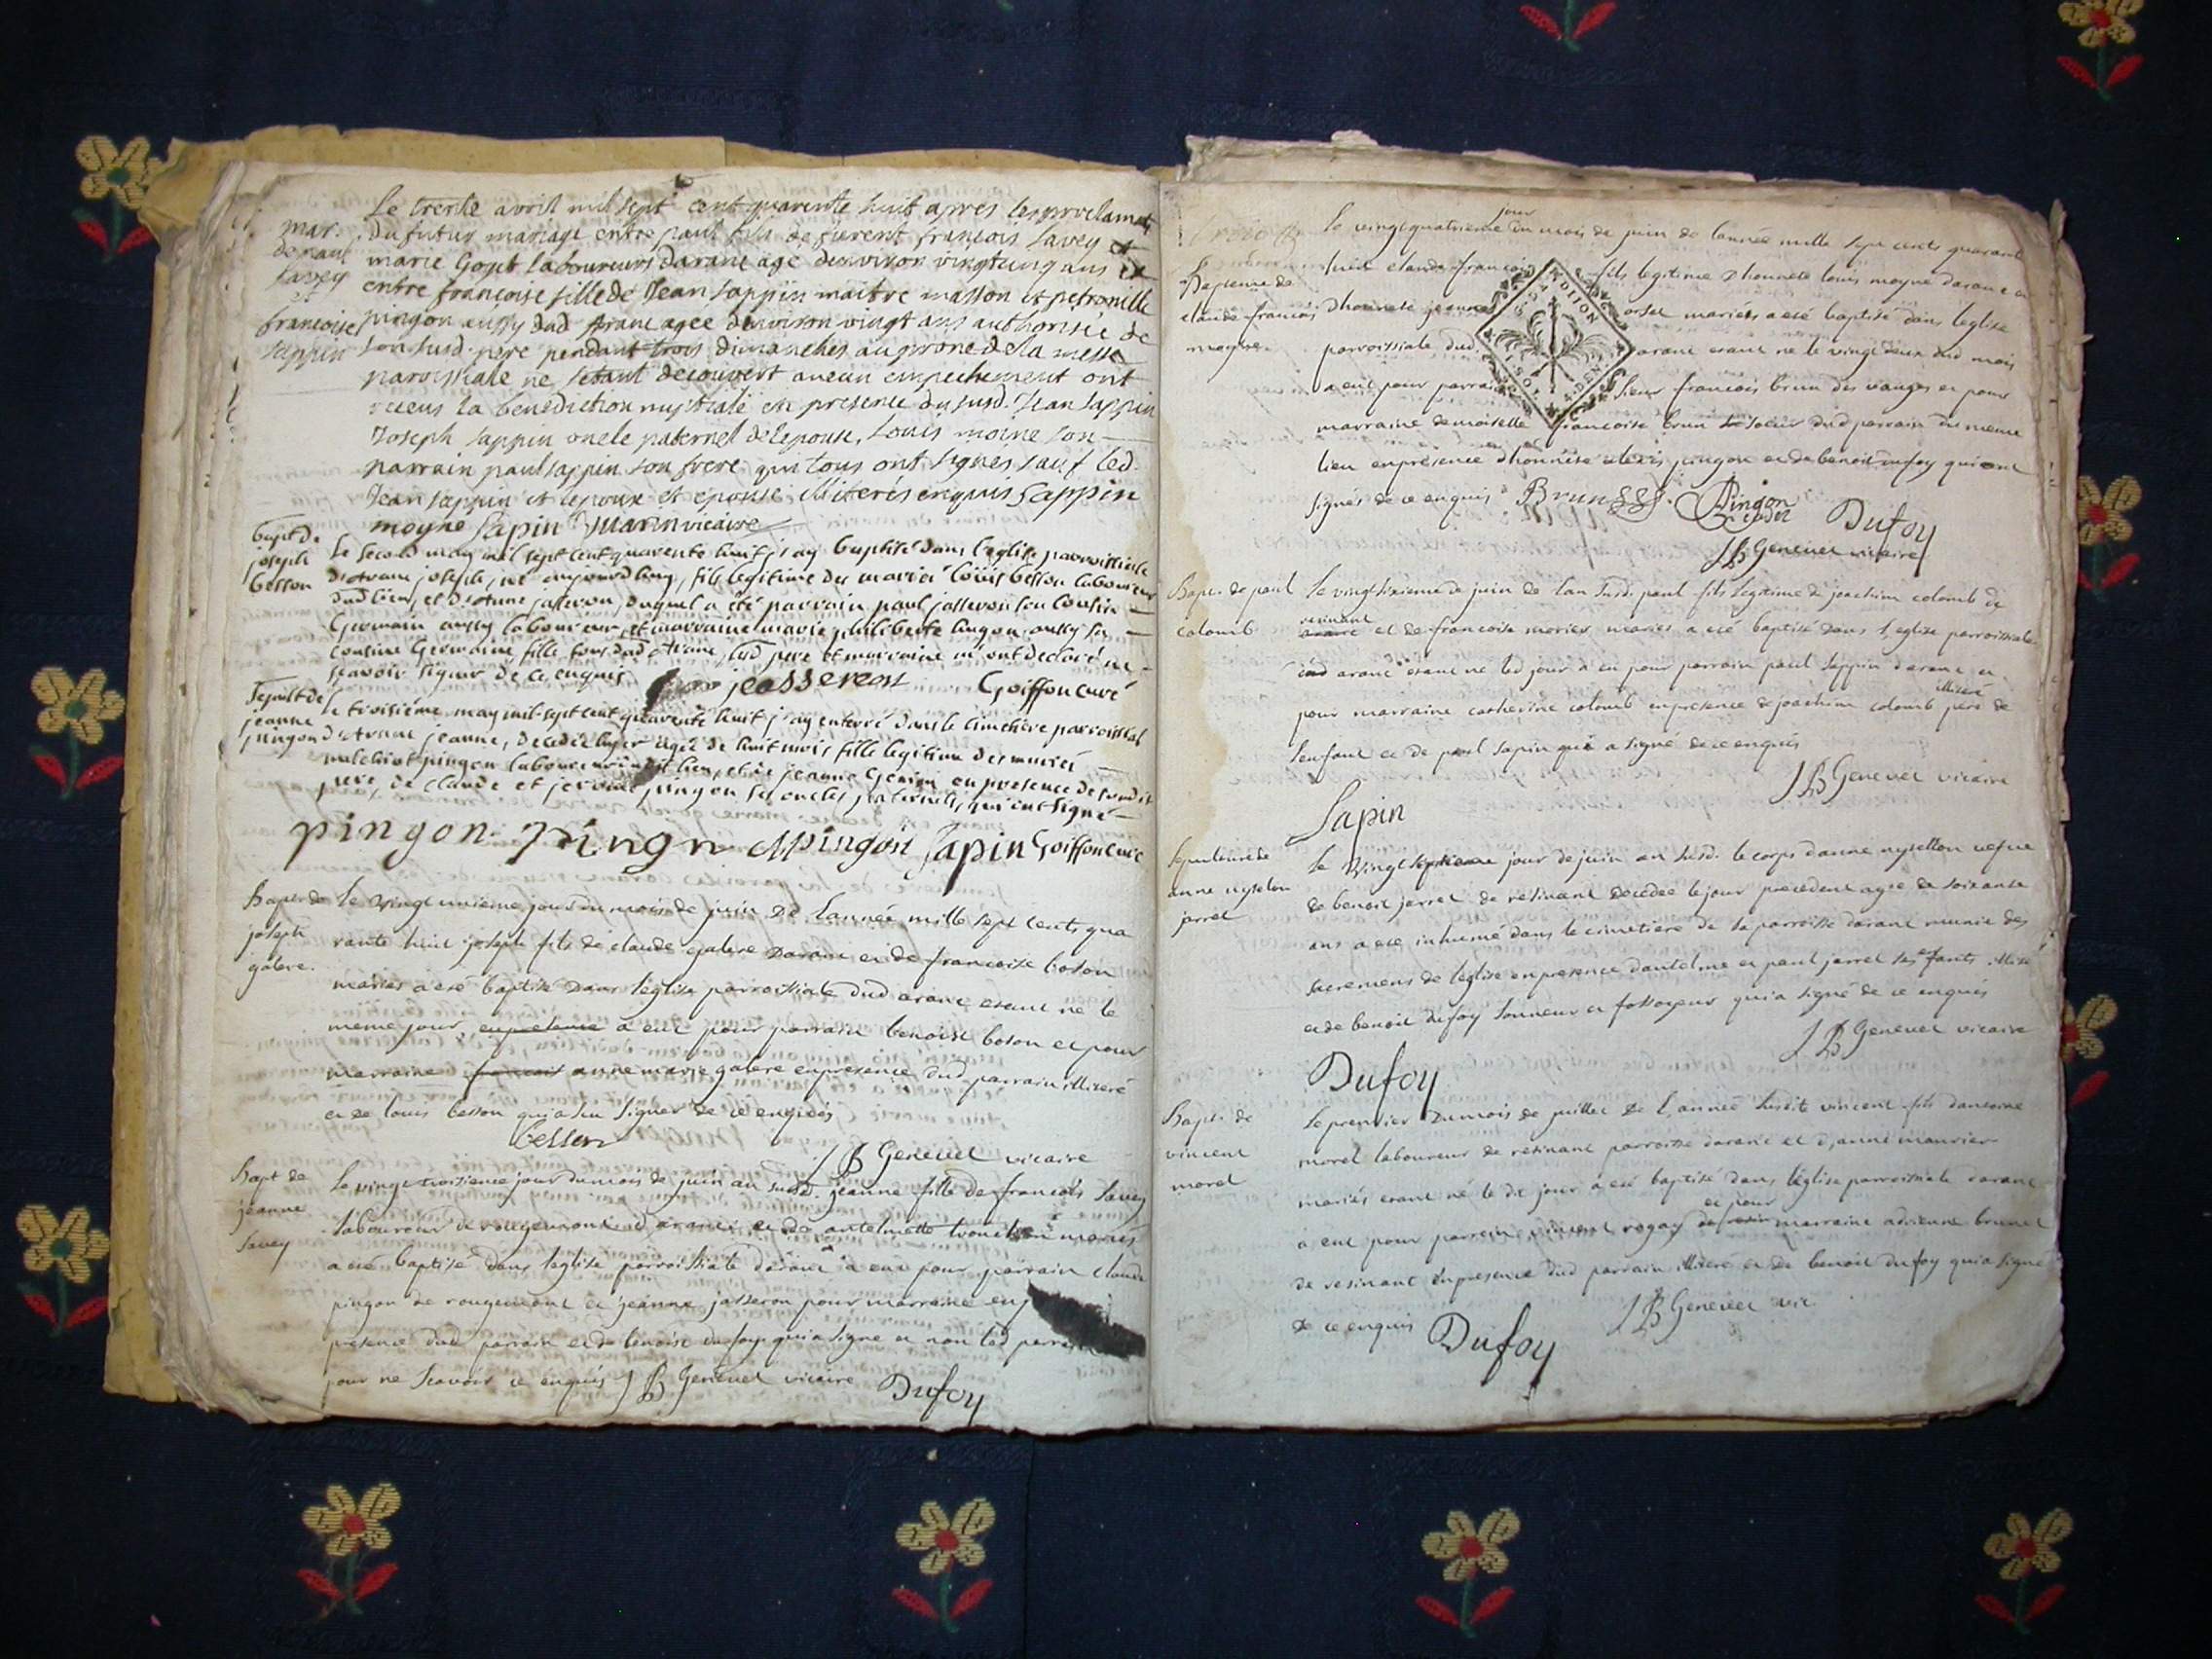 Le trente avril mil sept cent quarente huit apres les proclamat
mar. du futur mariage entre paul fils de furent françois Savey et
de paul marie Goyet laboureurs darane age denviron vingt ung ans et
Savey entre françoise fille de Jean Sappin maitre masson et petronille
et
francoise pingon aussy dud arane agee denviron vingt ans authorisée de
Sappin son susd. pere pendant trois dimanches au prone de la messe
paroissiale ne setant decouvert aucun empechement ont
receus la benediction nuptiale en presence du susd. Jean Sappin
Joseph Sappin oncle paternel de lepouse, Louis moine son
parrain paul sappin son frere qui tous ont signés sauf led.
Jean sappin et lepoux et epouse illiterés enquis Sappin
moyne Sapin Marin vicaire
bapt. de
joseph le second may mil sept cent quarente huit j'ay baptisé dans l'eglise parroissiale
besson d'Arane joseph, né aujourdhuy, fils legitime des mariés loüis besson laboureur
dud lieu, et d'Anne jasseron, duquel a été parrain paul jasseron son cousin
Germain aussy laboureur, et marraine marie philiberte lingon aussy sa
cousine Germaine fille tous dud Arane, led pere et marraine m'ont declaré ne
scavoir signer de ce enquis. jeasseron Goiffon curé
Sepult. de
jeanne le troisième may mil-sept cent quarente huit j'ay enterré dans le cimetière parroissial
pingon d'Arane jeanne, decedée hyer agée de huit mois fille legitime des mariés
melchiot pingon laboureur dudit lieu, et de jeanne Genion en presence de sondit
pere, de claude et jerome pingon ses oncles paternels, qui ont signé
pingon Pingon Mpingon Sapin Goiffon curé
Bapt. de le vingt unieme jour du mois de juin de l'année mille sept cents qua
joseph rante huit joseph fils de claude galere darane et de francoise boson
galere. mariés a eté baptisé dans l'eglise parroissiale dud arane etant né le
meme jour, en presence a eut pour parrain benoist boson et pour
marraine anne marie galere en presence dud parrain illiteré
et de louis besson qui a sçu signer de ce enquis
besson
J B Genevet vicaire
Bapt de le vingt troisieme jour du mois de juin an susd. jeanne fille de francois Savey
jeanne laboureur de rougemont d'arane et de antelmette trouchon mariés
Savey a eté baptisé dans l'eglise parroissiale darane a eut pour parrain claude
pingon de rougemont et jeanne jasseron pour marraine en
presence dud parrain et de benoist dufoy qui a signé et non led parrain
pour ne scavoir ce enquis J B Genevet vicaire Dufoy
jour
le vingt quatrieme du mois de juin de lannée mille sept cents quarant
Bapteme de huit claude francois fils legitime dhonnete louis moyne darane et
claude francois dhonnete jeanne orset mariés a eté baptisé dans leglise
moyne parroissiale dud. arane etant né le vingt deux dud mois
a eut pour parrain sieur francois brun des vanges et pour
marraine demoiselle francoise brun soeur dud parrain du meme
lieu en présence dhonnete alexis pingon et de benoit dufoy qui ont
signés de ce enquis Brun Pingon Dufoy
J B Genevet vicaire
Bapt. de paul le vingt sixieme de juin de lan susd. paul fils legitime de joachim colomb de
resinant
colomb arane et de francoise morier mariés a eté baptisé dans l'eglise parroissiale
dud arane etant né led jour a eu pour parrain paul sappin darane et
illiteré
pour marraine catherine colomb en presence de joachim colomb pere de
lenfant et de paul sapin qui a signé de ce enquis
J B Genevet vicaire
Sapin
Sepulture de le vingt septieme jour de juin an susd. le corps danne nysellon vefve
anne nyselon de benoit jarret de resinant decedée le jour precedent agée de soixante
jarret ans a eté inhumé dans le cimetiere de la parroisse darane munie des
sacremens de leglise en presence dantelme et paul jarret ses enfants illiteré
et de benoit dufoy sonneur et fossoyeur qui a signé de ce enquis
J B Genevet vicaire
Dufoy
Bapt. de le premier du mois de juillet de l'année susdite vincent fils dantoine
vincent morel laboureur de resinant parroisse darane et d'anne maurier
morel mariés etant né le dit jour a eté baptisé dans l'église parroissiale darane
et pour
a eut pour parrain vincent rogay marraine adrienne brunet
de resinant en presence dud parrain illiteré et de benoit dufoy qui a signé
de ce enquis J B Genevet vic
Dufoy